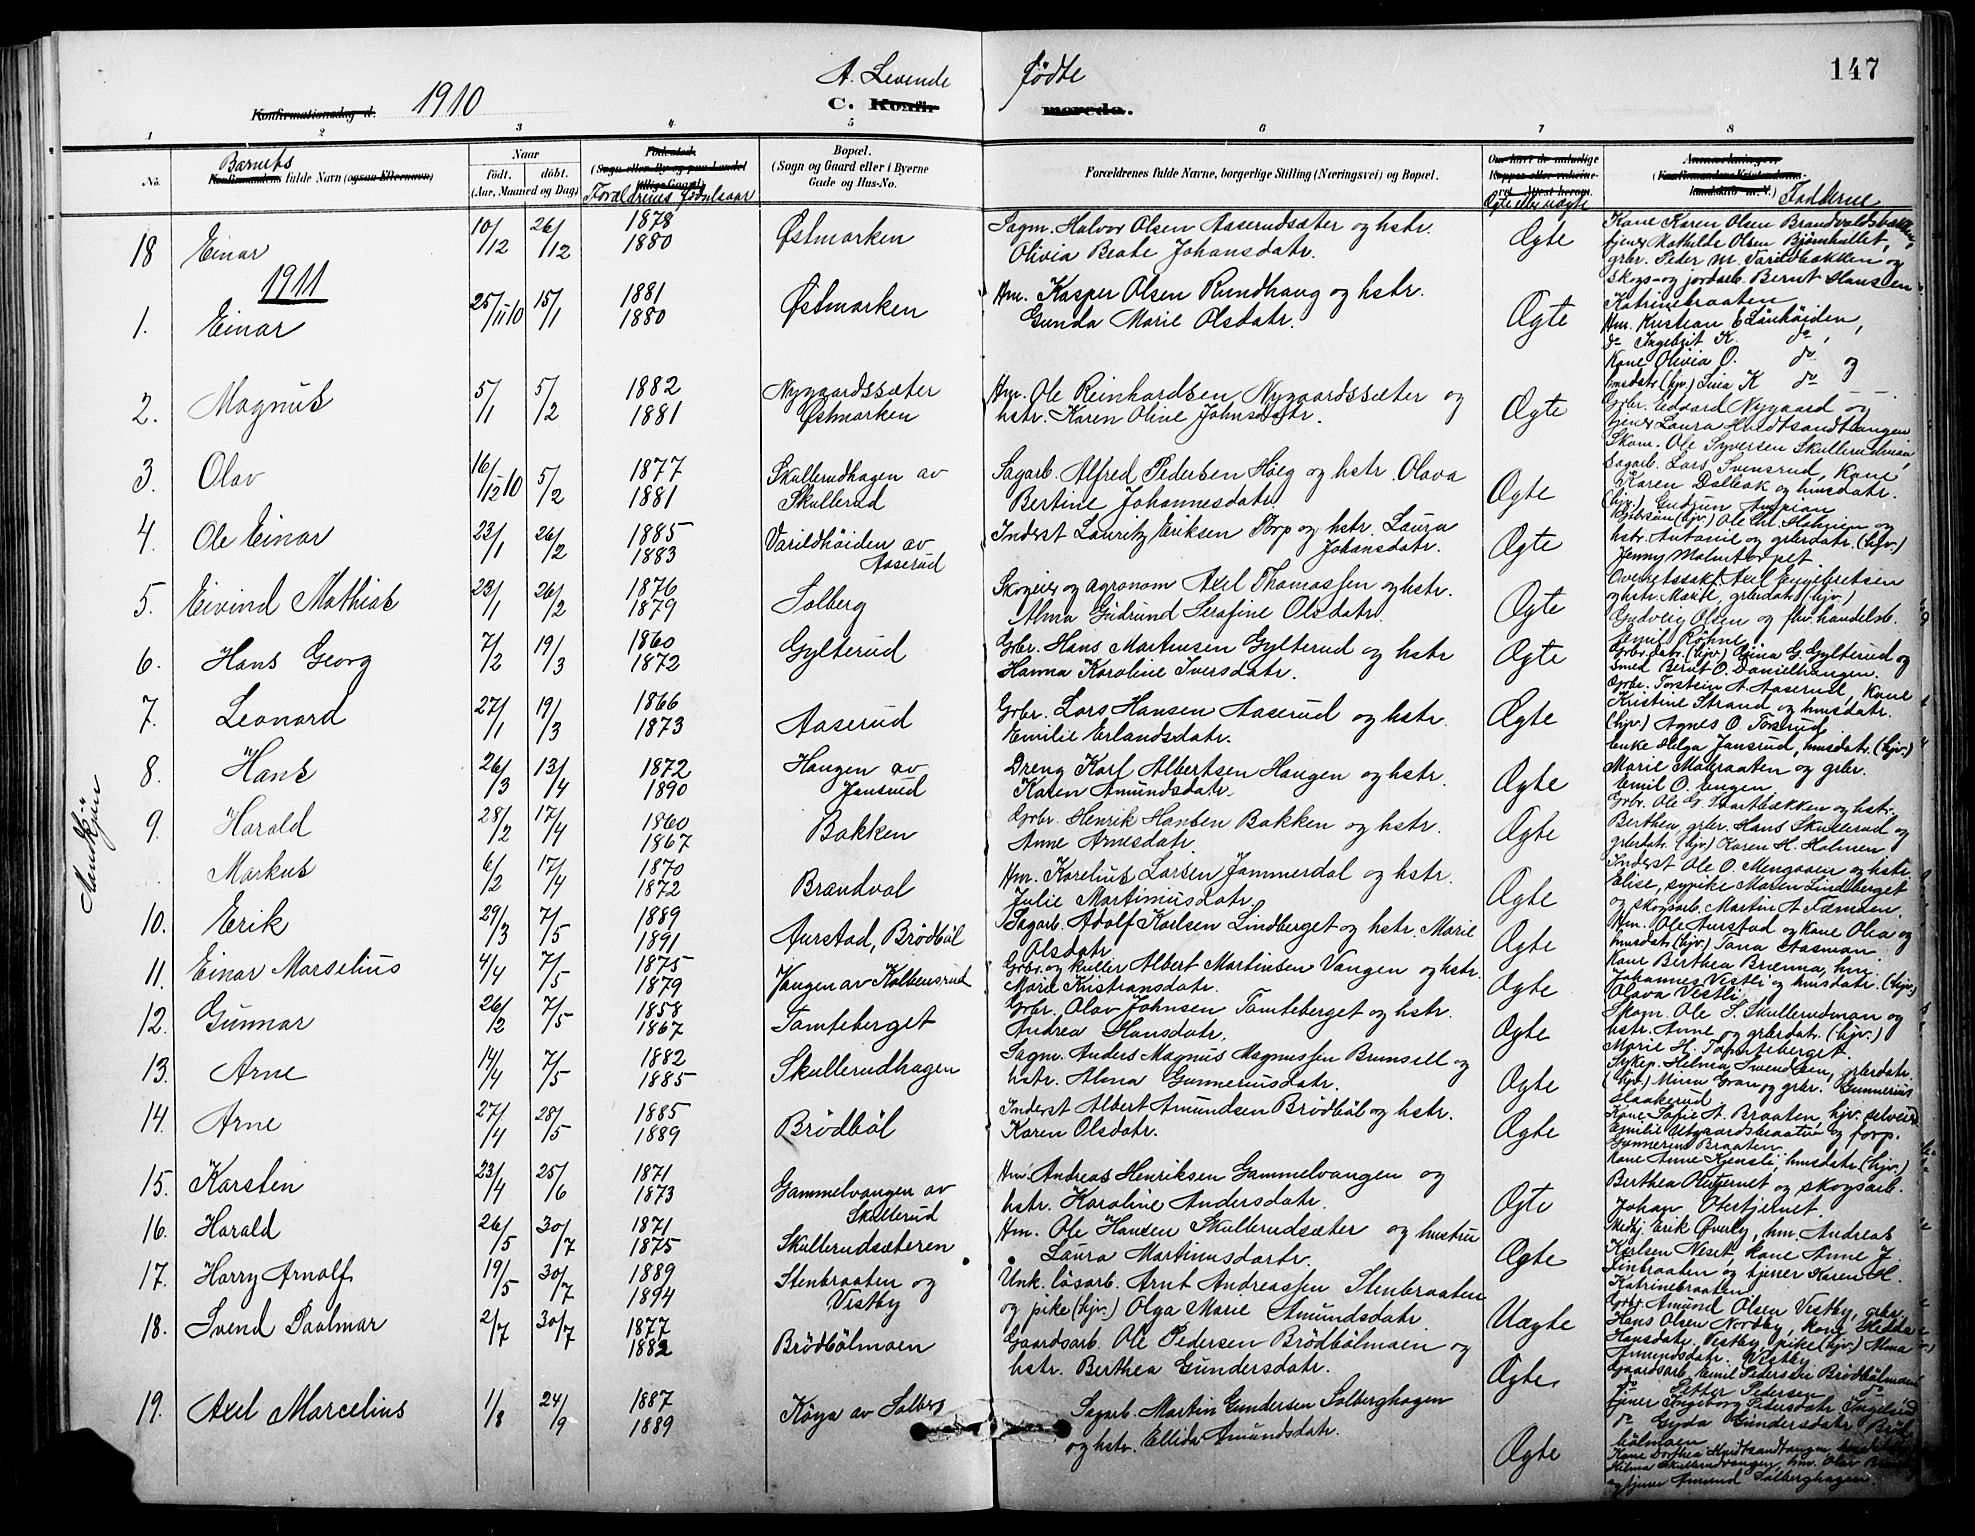 147
A. Levende fødte
1910
Konfirmationsdag d.
C. Konfir merede.
1 2 3 4 5 6 7 8
No.
Barnets
Konfirmandens fulde Navn (ogsaa Efternavn)
Naar
født. døbt.
(Aar, Maaned og Dag)
Fødested.
Forældrenes Fødselsaar
Bopæl.
(Sogn og Gaard eller i Byerne
Gade og Hus-No.
Forældrenes fulde Navne, borgerlige Stilling (Næringsvei) og Bopæl.
Ægte eller uægte
Fadderne
Mandkjøn
18 Einar 10/12 26/12 1878 1880 Østmarken
Sagm. Halvor Olsen Aaserudsæter og hstr.
Olivia Beate Johansdatr.
Ægte
Kone Karen Olsen Brandvoldsbakken,
tjener Mathilde Olsen Bjørnhullet,
grbr. Peder M. Varildbakken og
skogs- og jordarb. Bernt Hansen
Katrinebraaten
1911
1. Einar 25/11 10 15/1 1881 1880 Østmarken
Hm. Kasper Olsen Rundhaug og hstr.
Gunda Marie Olsdatr.
Ægte
Hm. Kristian E. Lånhøiden,
do Ingebrit K. do,
Kone Olivia O. do og
husdatr. (hjv.) Lina K do
2. Magnus 5/1 5/2 1882 1881 Nygaardssæter Østmarken
Hm. Ole Reinhardsen Nygaardssæter og
hstr. Karen Oline Johnsdatr.
Ægte
Grbr. Edvard Nygaard og
tjener Laura Hvidtsandtangen
Skom. Ole Syversen Skullerudmoen,
3. Olav 16/12 10 5/2 1877 1881 Skullerudhagen av Skullerud
Sagarb. Alfred Pedersen Høeg og hstr. Olava
Bertine Johannesdatr.
Ægte
Sagarb. Lars Svensrud, Kone
Karen Dalbak og husdatr.
4. Ole Einar 23/1 26/2 1885 1883 Varildhøiden av Aaserud
Inderst Lauritz Eriksen Torp og hstr. Laura
Johansdatr.
Ægte
hstr. Antonie og grbrdatr. (hjv.)
Jenny Malmtorpet
5. Eivind Mathias 22/1 26/2 1876 1879 Solberg
Skogeier og agronom Axel Thomassen og hstr.
Alma Gudrund Serafine Olsdatr.
Ægte
Overretssakf. Axel Engebretsen
og hstr. Marit, grbrdatr. (hjv.)
Gudveig Olsen og fhv. handelsb.
Emil Røhne
6. Hans Georg 7/2 19/3 1860 1872 Gylterud
Grbr. Hans Martinsen Gylterud og hstr
Hanna Karoline Iversdatr.
Ægte
Grbr.datr. (hjv.) Gina G. Gylterud og
Smed Bernt O. Danieltangen.
7. Leonard 27/1 19/3 1866 1873 Aaserud
Grbr. Lars Hansen Aaserud og hstr.
Emilie Erlandsdatr.
Ægte
Grbr. Torstein A. Aaserud, Kone
Kristine Strand og husdatr.
(hjv.) Agnes O. Torsrud
8. Hans 26/3 13/4 1872 1890 Haugen av Jansrud
Dreng Karl Albertsen Haugen og hstr.
Karen Amundsdatr.
Ægte
Enke Helga Jansrud, husdatr. (hjv.)
Marie Matraaten og grbr.
Emil O. Engen
9. Harald 28/2 17/4 1860 1867 Bakken
Grbr. Henrik Hansen Bakken og hstr.
Anne Arnesdatr.
Ægte
Grbr. Ole G. Svartbækken og hstr.
Berthea, grbr. Hans Skullerud og
grbrdatr. (hjv.) Karen H. Holmen
Markus 6/2 17/4 1870 1872 Brandval
Hm. Karelius Larsen Jammerdal og hstr.
Julie Martiniusdatr.
Ægte
Inderst Ole O. Mengaaen og hstr.
Elise, sypike Maren Lindberget
og skogsarb. Martin A. Tæmoen.
10. Erik 29/3 7/5 1889 1891 Aurstad, Brödböl
Sagarb. Adolf Karlsen Lindberget og hstr. Marie
Olsdatr.
Ægte
Hm. Ole Aurstad og Kone Olea og
husdatr. (hjv.) Jana Stasmoen.
11. Einar Marselius 4/4 7/5 1875 1879 Vangen av Kolbensrud
Grbr. og kuller Albert Martinsen Vangen og hstr.
Marie Kristiansdatr.
Ægte
Kone Berthea Brænna, hm.
Johannes Vestli og husdatr. (hjv.)
Olava Vestli
12. Gunnar 26/2 7/5 1858 1867 Tomteberget
Grbr. Olav Johnsen Tomteberget og hstr.
Andrea Hansdatr.
Ægte
Skom. Ole S. Skullerudmoen og
hstr. Anne og grbrdatr. (hjv.)
Marie H. Tomteberget.
13. Arne 14/4 7/5 1882 1885 Skullerudhagen
Sagm. Anders Magnus Magnussen Brunsell og
hstr. Alma Gunneriusdatr.
Ægte
Sykep. Helma Svendsen, grbrdatr.
(hjv.) Mina Gran og grbr. Gunnerius
Slaakerud.
14. Arne 27/4 28/5 1885 1889 Brödböl
Inderst Albert Amundsen Brödböl og hstr.
Karen Olsdatr.
Ægte
Kone Sofie A. Braaten, hjv. selveierd.
og forp.
Gunnerius Braaten
15. Karsten 23/4 25/6 1871 1873 Gammelvangen av Skullerud
Hm. Andreas Henriksen Gammelvangen og
hstr. Karoline Andersdatr.
Ægte
Kone Anne Kjensli, husdatr. (hjv.)
Berthea Otertjernet og skogsarb.
Johan Otertjernet.
16. Harald 26/5 30/7 1871 1875 Skullerudsæteren
Hm. Ole Hansen Skullerudsæter og hustru
Laura Martinusdartr.
Ægte
Medhj. Erik Øverby, hm. Andreas
Karlsen Neset, kone Anne J
Finbraaten og tjener Karen H.
Katrinebraaten
17. Harry Arnolf 19/5 30/7 1889 1894 Stenbraaten og Vestby
Unk. løsarb. Arnt Andreassen Stenbraaten
og pike (hjv.) Olga Marie Amundsdatr.
Uægte
Grbr. Amund Olsen Vestby, grbr.
Hans Olsen Nordby, kone Hedda
Hansdatr. Vestby, pike (hjv.) Alma
Amundsdatr. Vestby
18. Svend Daalmar 2/7 30/7 1877 1882 Brödbölmoen
Gaardsarb. Ole Pedersen Brödbölmoen og
hstr. Berthea Gundersdatr.
Ægte
Gaardsarb. Emil Pedersen Brödbölmoen
do Petter Pedersen do
tjener Ingeborg Pedersdatr. Ingelsrud
do Gyda Gundersdatr. Bröd-
bölmoen
19. Axel Marcelius 1/8 24/9 1887 1889 Köya av Solberg
Sagarb. Martin Gundersen Solberghagen
og hstr. Ellida Amundsdatr.
Ægte
Kone Dorthea Hvidtsandtangen
Hilma Skullerudvangen, hm. Olav
og tjener Amund Solberghagen.